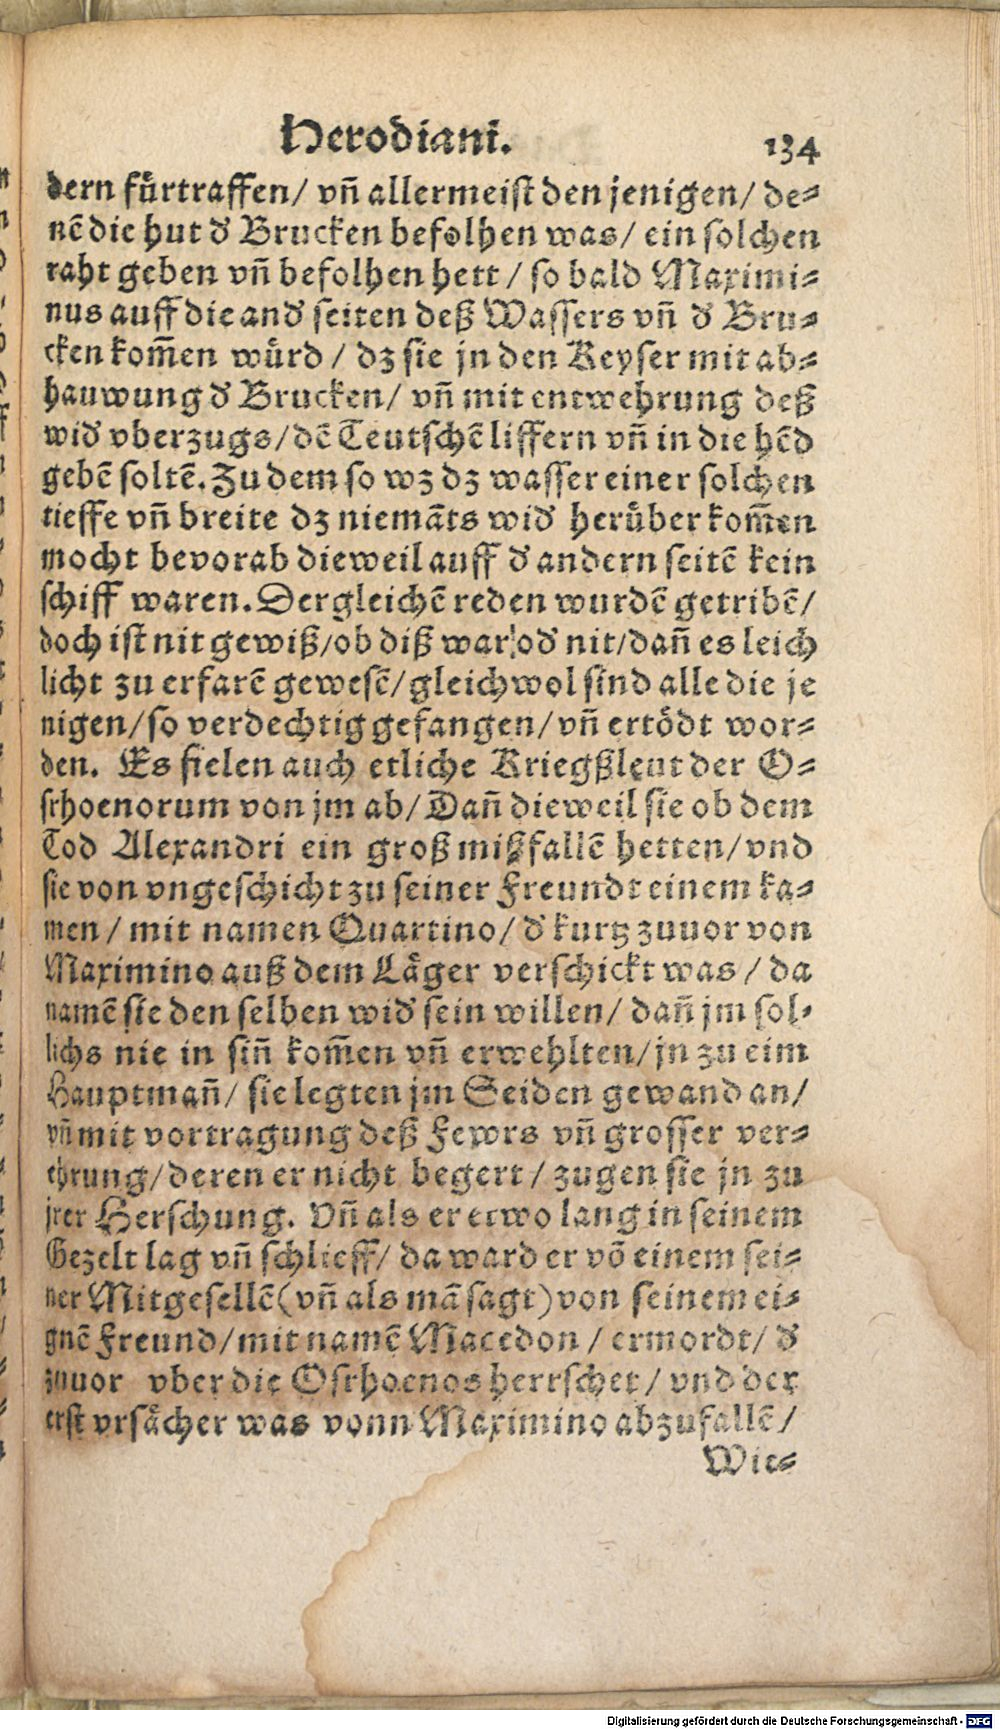 Herodiani. 134
dern fuͤrtraffen/ vñ allermeist den jenigen/ de⸗
nẽ die hut d' Brucken befolhen was/ ein solchen
raht geben vñ befolhen hett / so bald Maximi⸗
nus auff die and' seiten deß Wassers vñ d' Bru⸗
cken kom̃en wuͤrd / dz sie jn den Keyser mit ab⸗
hauwung d' Brucken/ vñ mit entwehrung deß
wid' vberzugs/ dẽ Teutschẽ liffern vñ in die hẽd
gebẽ soltẽ. Zu dem so wz dz wasser einer solchen
tieffe vñ breite dz niemãts wid' heruͤber kom̃en
mocht bevorab dieweil auff d' andern seitẽ kein
schiff waren. Dergleichẽ reden wurdẽ getribẽ/
doch ist nit gewiß/ ob diß war/ od' nit/ dañ es leich
licht zu erfarẽ gewesẽ/ gleichwol sind alle die je
nigen/ so verdechtig gefangen/ vñ ertoͤdt wor⸗
den. Es fielen auch etliche Kriegßleut der O⸗
srhoenorum von jm ab/ Dañ dieweil sie ob dem
Tod Alexandri ein groß mißfallẽ hetten/ vnd
sie von vngeschicht zu seiner Freundt einem ka⸗
men / mit namen Quartino/ d' kurtz zuuor von
Maximino auß dem Laͤger verschickt was / da
namẽ sie den selben wid' sein willen/ dañ jm sol⸗
lichs nie in siñ kom̃en vñ erwehlten/ jn zu eim
Hauptmañ/ sie legten jm Seiden gewand an/
vñ mit vortragung deß Fewrs vñ grosser ver⸗
ehrung/ deren er nicht begert / zugen sie jn zu
jrer Herschung. Vñ als er etwo lang in seinem
Gezelt lag vñ schlieff/ da ward er võ einem sei⸗
ner Mitgesellẽ (vñ als mã sagt) von seinem ei⸗
gnẽ Freund/ mit namẽ Macedon / ermordt/ d'
zuuor vber die Osrhoenos herrschet / vnd der
erst vrsaͤcher was vonn Maximino abzufallẽ/
Wie⸗
Digitalisierung gefördert durch die Deutsche Forschungsgemeinschaft - DFG